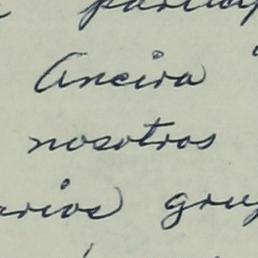 particip
Aneira
nosotros
varios grup